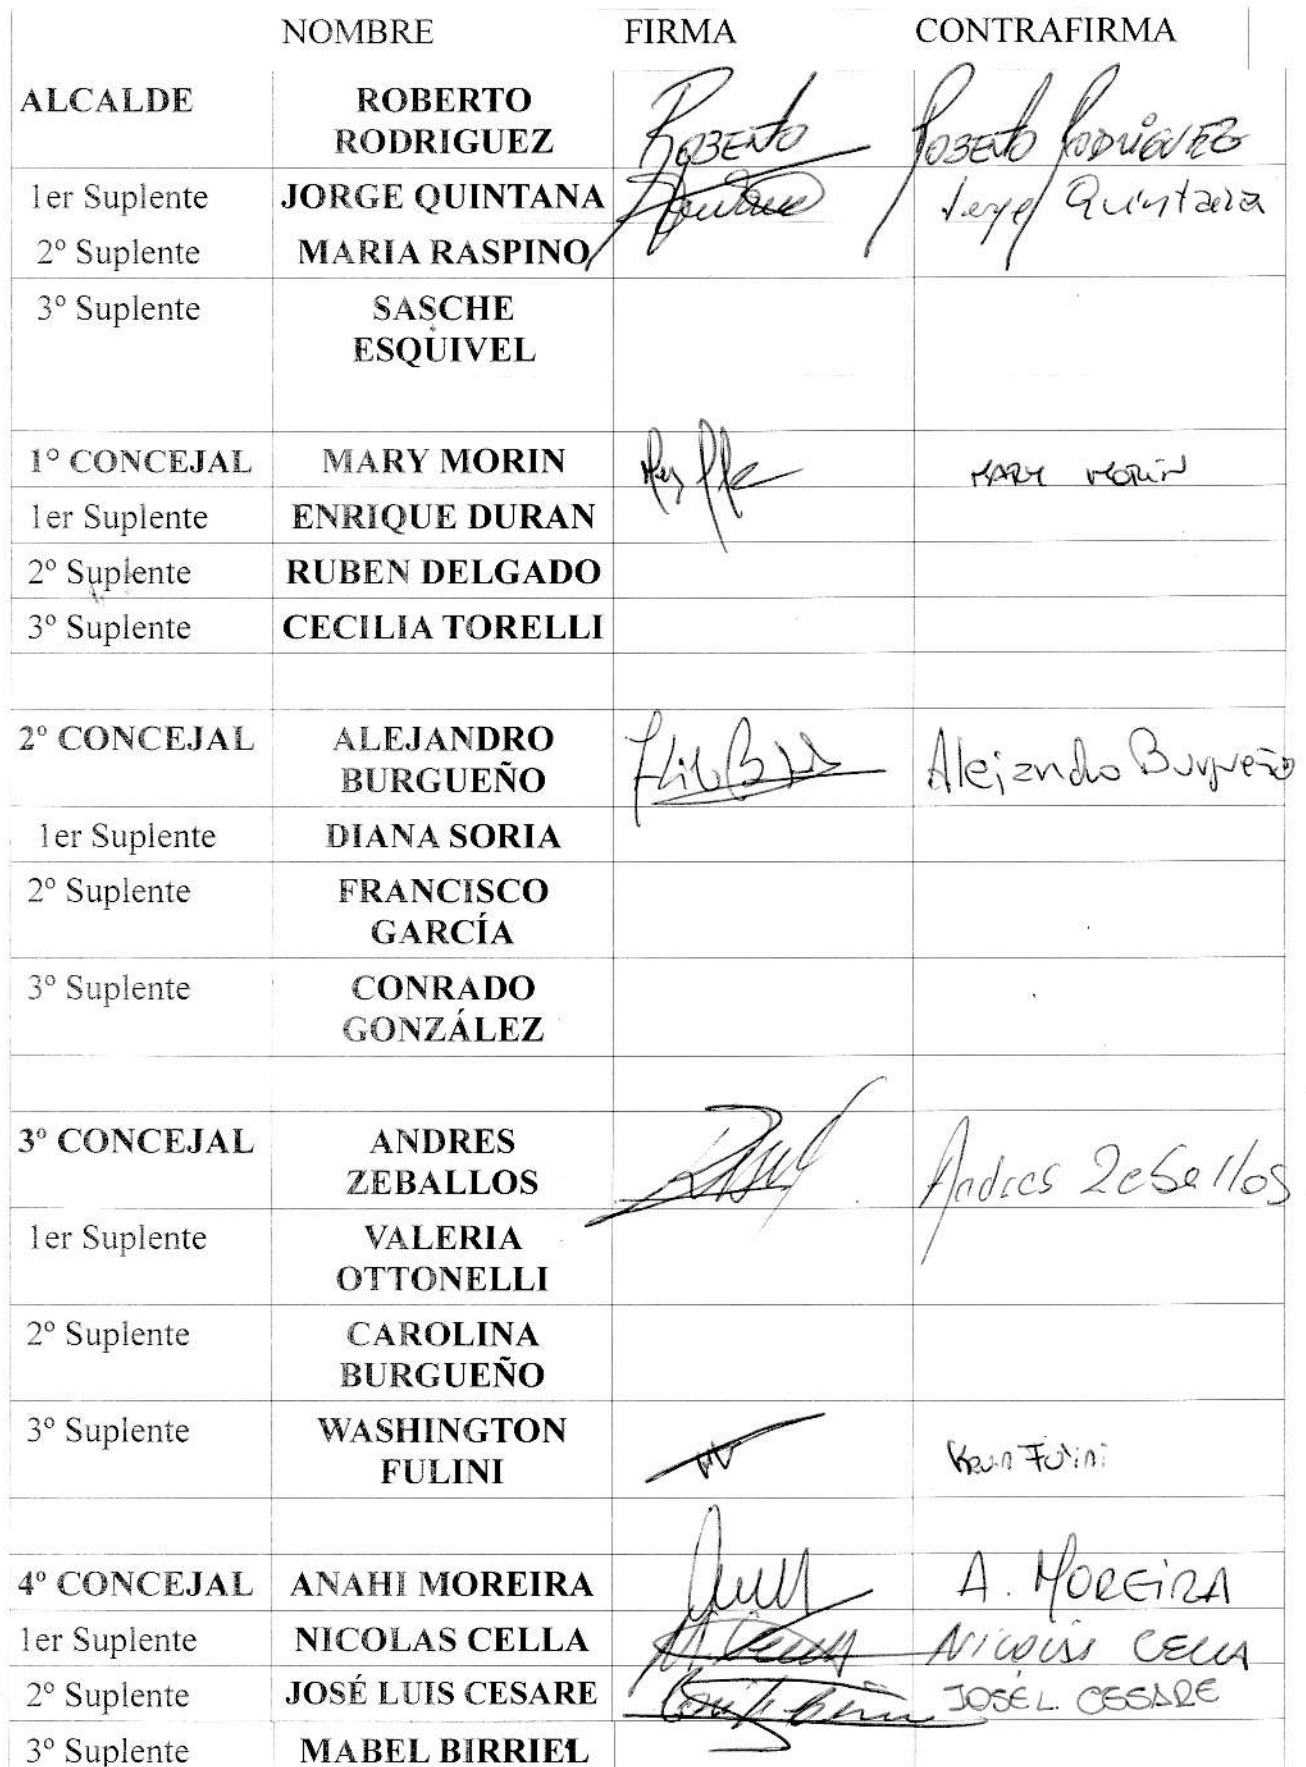 NOMBRE FIRMA CONTRAFIRMA
ALCALDE ROBERTO
RODRIGUEZ ROBERTO ROBERTO RODRIGUEZ
1er Suplente JORGE QUINTANA Jorge Quintana
2º Suplente MARIA RASPINO
3º Suplente SASCHE
ESQUIVEL
1º CONCEJAL MARY MORIN MARY MORIN
1er Suplente ENRIQUE DURAN
2º Suplente RUBEN DELGADO
3º Suplente CECILIA TORELLI
2º CONCEJAL ALEJANDRO
BURGUEÑO Alejandro Burgueño
1er Suplente DIANA SORIA
2º Suplente FRANCISCO
GARCÍA
3º Suplente CONRADO
GONZÁLEZ
3º CONCEJAL ANDRES
ZEBALLOS Andres Zeballos
1er Suplente VALERIA
OTTONELLI
2º Suplente CAROLINA
BURGUEÑO
3º Suplente WASHINGTON
FULINI Kevin Fulini
4º CONCEJAL ANAHI MOREIRA A. MOREIRA
1er Suplente NICOLAS CELLA NICOLÁS CELLA
2º Suplente JOSÉ LUIS CESARE JOSÉ L. CESARE
3º Suplente MABEL BIRRIEL